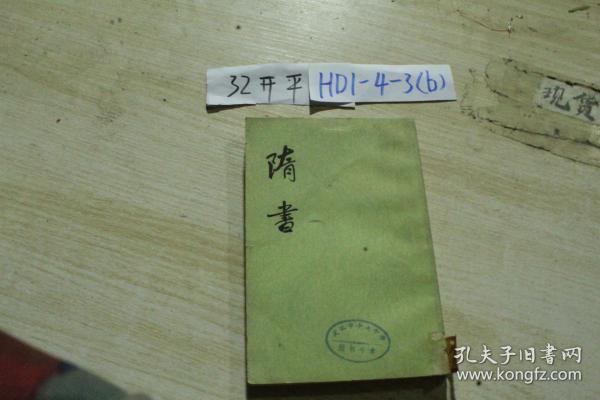 32开平
HD1-4-3(b)
现货
隋書
孔夫子旧書网
www.kongfz.com